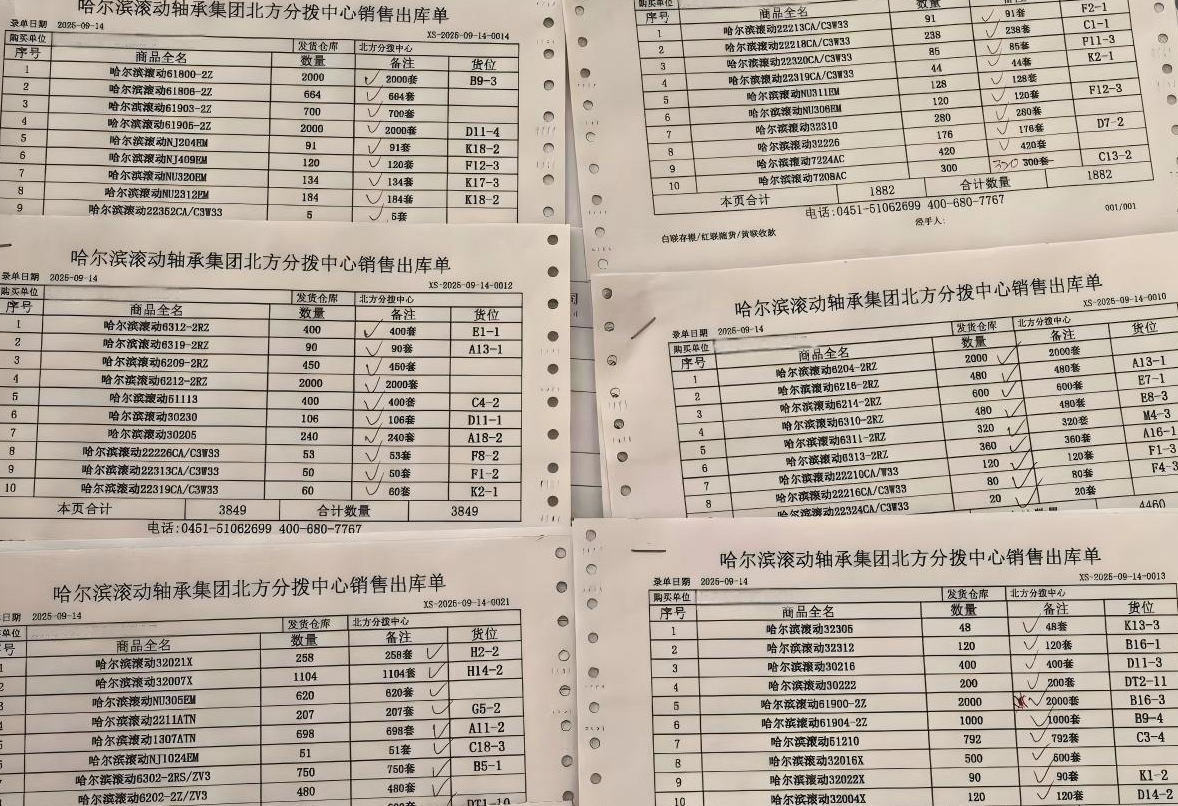 哈尔滨滚动轴承集团北方分拨中心销售出库单
录单日期 2025-09-14 XS-2025-09-14-0014
购买单位 发货仓库 北方分拨中心
序号 商品全名 数量 备注 货位
1 哈尔滨滚动61800-2Z 2000 2000套 B9-3
2 哈尔滨滚动61806-2Z 664 664套
3 哈尔滨滚动61903-2Z 700 700套
4 哈尔滨滚动61905-2Z 2000 2000套 D11-4
5 哈尔滨滚动NJ204EM 91 91套 K18-2
6 哈尔滨滚动NJ409EM 120 120套 F12-3
7 哈尔滨滚动NU320EM 134 134套 K17-3
8 哈尔滨滚动NU2312EM 184 184套 K18-2
9 哈尔滨滚动22352CA/C3W33 5 5套
序号 商品全名 数量
1 哈尔滨滚动22213CA/C3W33 91 91套 F2-1
2 哈尔滨滚动22218CA/C3W33 238 238套 C1-1
3 哈尔滨滚动22320CA/C3W33 85 85套 F11-3
4 哈尔滨滚动22319CA/C3W33 44 44套 K2-1
5 哈尔滨滚动NU311EM 128 128套
6 哈尔滨滚动NU306EM 120 120套 F12-3
7 哈尔滨滚动32310 280 280套
8 哈尔滨滚动32226 176 176套 D7-2
9 哈尔滨滚动7224AC 420 420套
10 哈尔滨滚动7208AC 300 320 300套 C13-2
本页合计 1882 合计数量 1882
电话:0451-51062699 400-680-7767
经手人: 001/001
白联存根/红联随货/黄联收款
哈尔滨滚动轴承集团北方分拨中心销售出库单
录单日期 2025-09-14 XS-2025-09-14-0012
购买单位 发货仓库 北方分拨中心
序号 商品全名 数量 备注 货位
1 哈尔滨滚动6312-2RZ 400 400套 E1-1
2 哈尔滨滚动6319-2RZ 90 90套 A13-1
3 哈尔滨滚动6209-2RZ 450 450套
4 哈尔滨滚动6212-2RZ 2000 2000套
5 哈尔滨滚动51113 400 400套 C4-2
6 哈尔滨滚动30230 106 106套 D11-1
7 哈尔滨滚动30205 240 240套 A18-2
8 哈尔滨滚动22226CA/C3W33 53 53套 F8-2
9 哈尔滨滚动22313CA/C3W33 50 50套 F1-2
10 哈尔滨滚动22319CA/C3W33 60 60套 K2-1
本页合计 3849 合计数量 3849
电话:0451-51062699 400-680-7767
哈尔滨滚动轴承集团北方分拨中心销售出库单
录单日期 2025-09-14 XS-2025-09-14-0010
购买单位 发货仓库 北方分拨中心
序号 商品全名 数量 备注 货位
1 哈尔滨滚动6204-2RZ 2000 2000套
2 哈尔滨滚动6216-2RZ 480 480套 A13-1
3 哈尔滨滚动6214-2RZ 600 600套 E7-1
4 哈尔滨滚动6310-2RZ 480 480套 E8-3
5 哈尔滨滚动6311-2RZ 320 320套 M4-3
6 哈尔滨滚动6313-2RZ 360 360套 A16-1
7 哈尔滨滚动22210CA/W33 120 120套 F1-3
8 哈尔滨滚动22216CA/C3W33 80 80套 F4-3
哈尔滨滚动22324CA/C3W33 20 20套
4460
哈尔滨滚动轴承集团北方分拨中心销售出库单
单日期 2025-09-14 XS-2025-09-14-0021
单位 发货仓库 北方分拨中心
号 商品全名 数量 备注 货位
1 哈尔滨滚动32021X 258 258套 H2-2
2 哈尔滨滚动32007X 1104 1104套 H14-2
3 哈尔滨滚动NU305EM 620 620套
4 哈尔滨滚动2211ATN 207 207套 G5-2
5 哈尔滨滚动1307ATN 698 698套 A11-2
6 哈尔滨滚动NJ1024EM 51 51套 C18-3
7 哈尔滨滚动6302-2RS/ZV3 750 750套 B5-1
哈尔滨滚动6202-2Z/ZV3 480 480套
DT1-10
哈尔滨滚动轴承集团北方分拨中心销售出库单
录单日期 2025-09-14 XS-2025-09-14-0013
购买单位 发货仓库 北方分拨中心
序号 商品全名 数量 备注 货位
1 哈尔滨滚动32305 48 48套 K13-3
2 哈尔滨滚动32312 120 120套 B16-1
3 哈尔滨滚动30216 400 400套 D11-3
4 哈尔滨滚动30222 200 200套 DT2-11
5 哈尔滨滚动61900-2Z 2000 2000套 B16-3
6 哈尔滨滚动61904-2Z 1000 1000套 B9-4
7 哈尔滨滚动51210 792 792套 C3-4
8 哈尔滨滚动32016X 500 500套
9 哈尔滨滚动32022X 90 90套 K1-2
10 哈尔滨滚动32004X 120 120套 D14-2